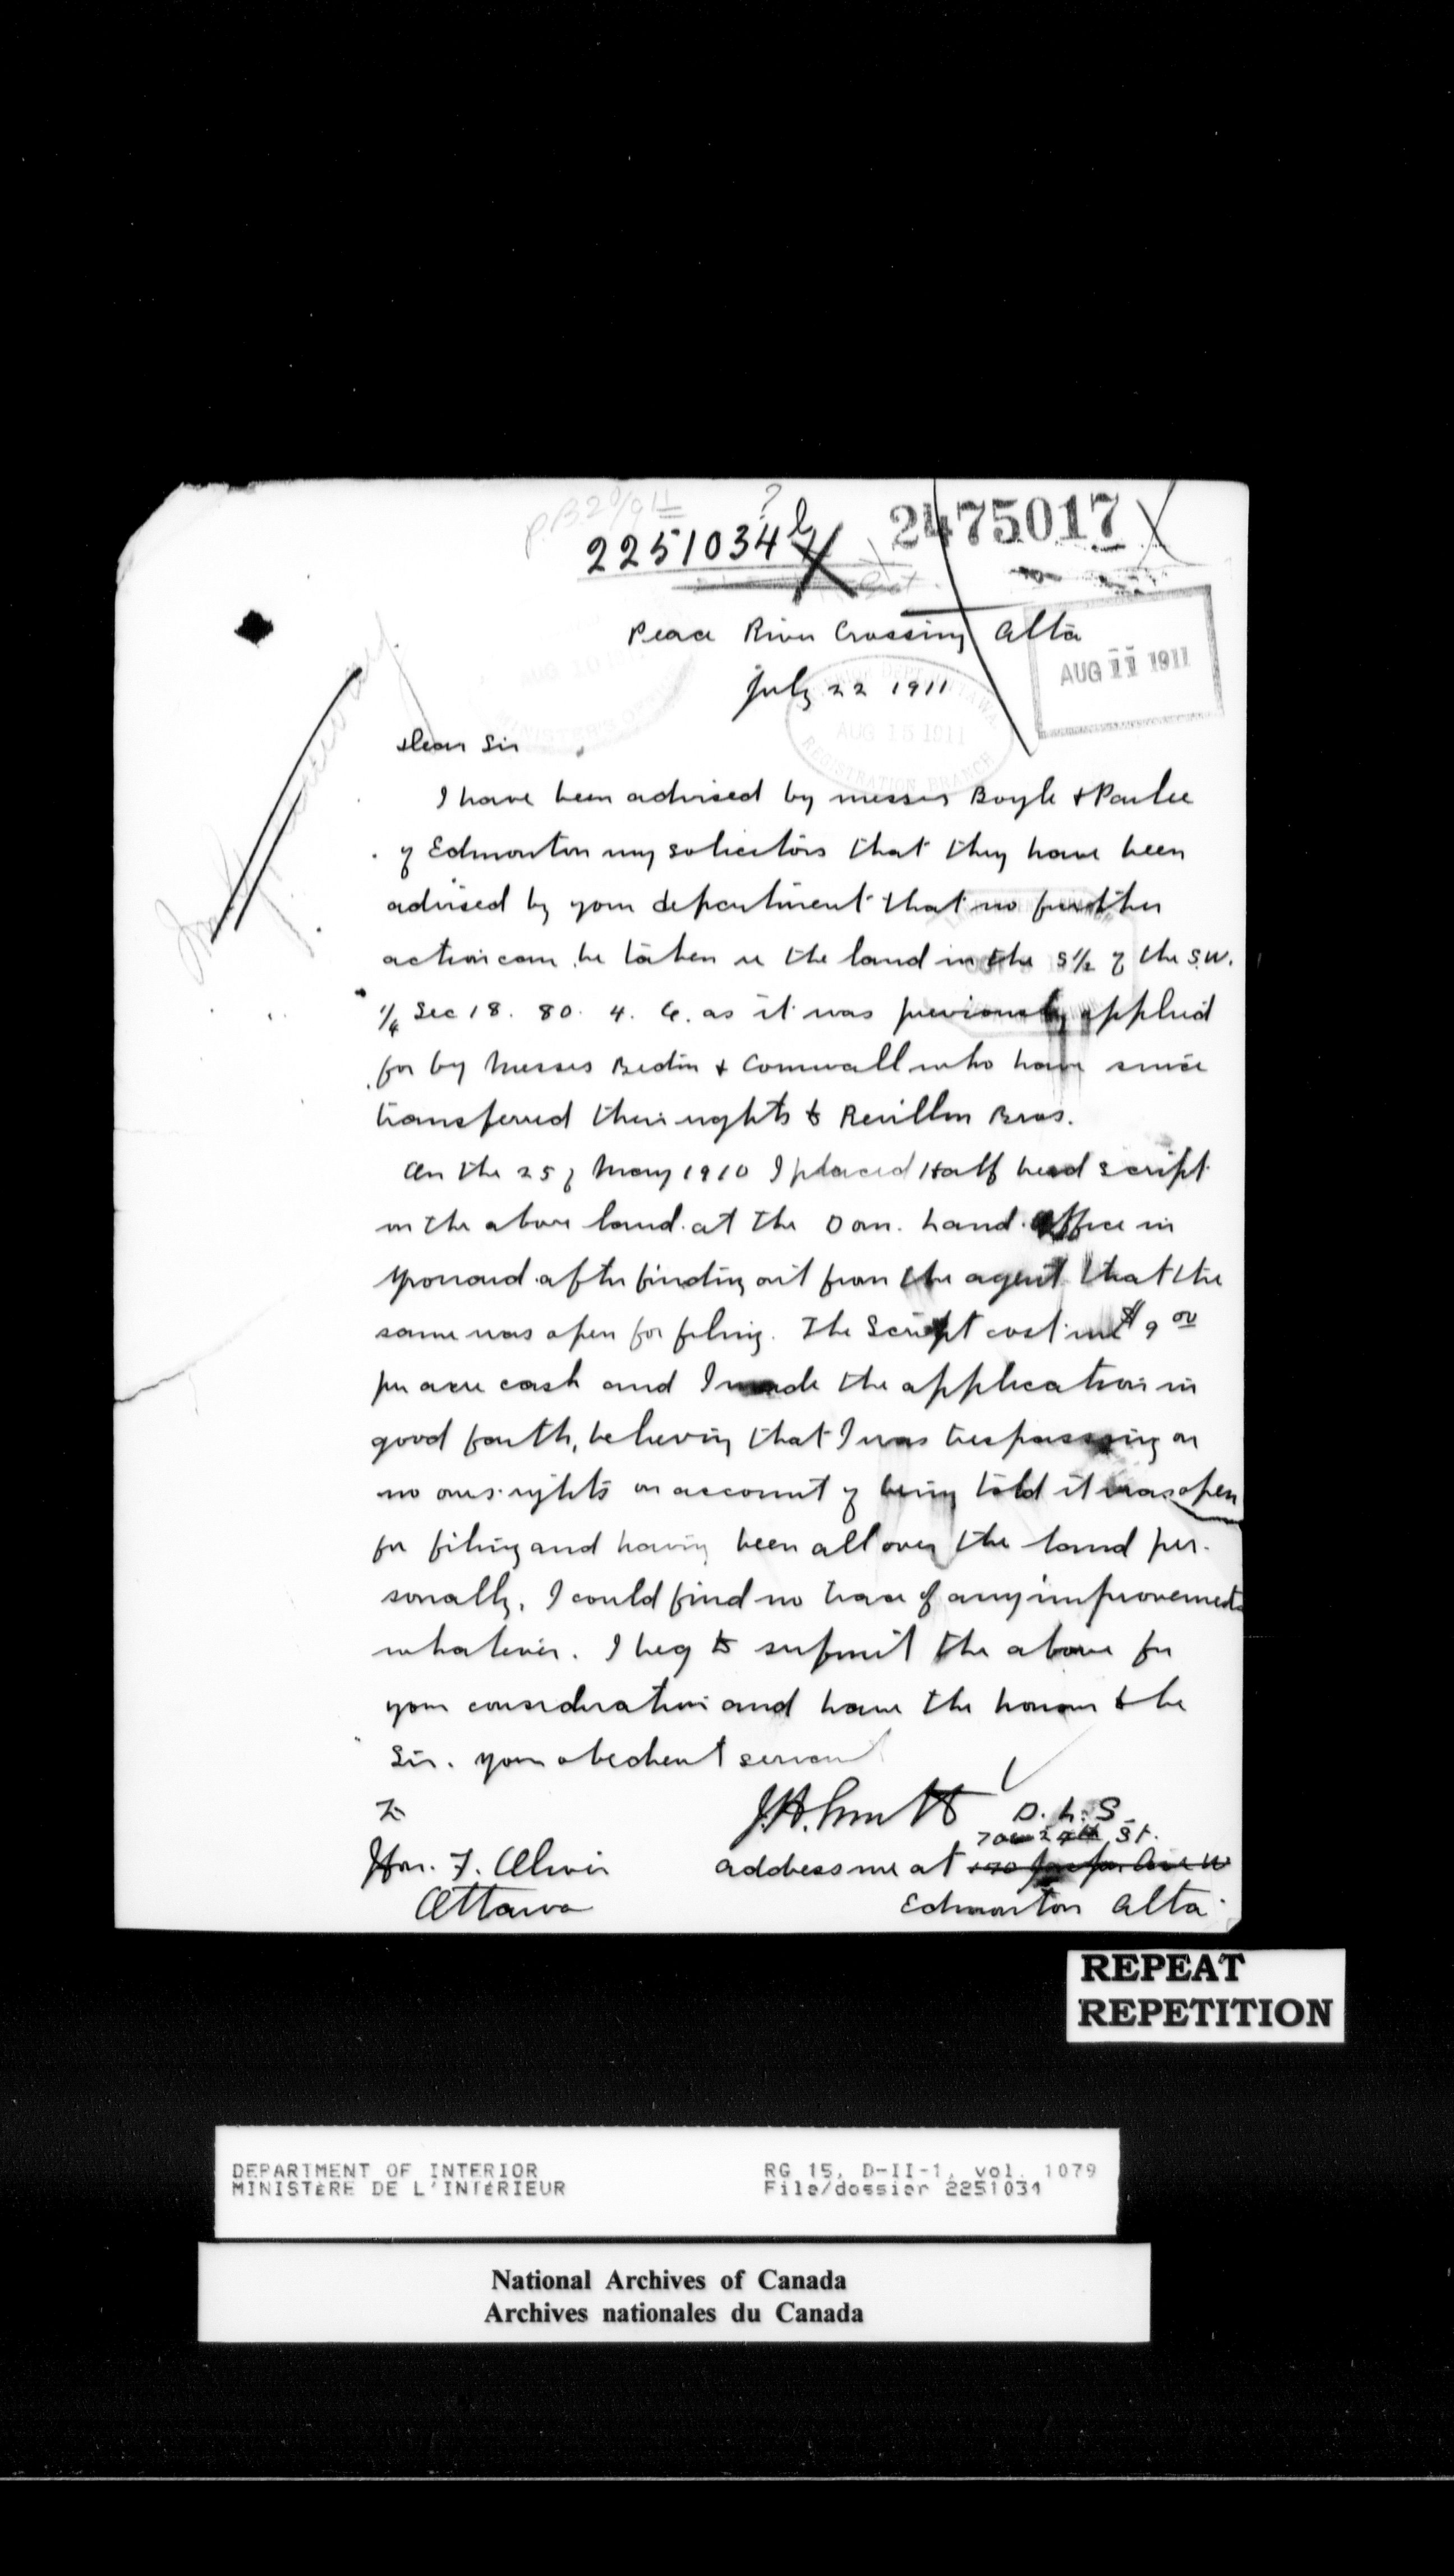 P.B. 20/9 11
?
2251034 b
2475017
AUG 10 1911
MINISTER'S OFFICE
Peace River Crossing Alta
AUG 11 1911
July 22 1911
AUG 15 1911
REGISTRATION BRANCH
Dear Sir
I have been advised by messrs Boyle & Parlee
of Edmonton my solicitors that they have been
advised by your department that no further
action can be taken re the land in the S 1/2 of the S.W.
1/4 Sec 18. 80. 4. 6. as it was previously applied
for by Messrs Bredin & Cornwall who have since
transferred their rights to Revillon Bros.
On the 25 of May 1910 I placed Half breed script
on the above land at the Dom. Land Office in
Grouard after finding out from the agent that the
same was open for filing. The Script cost me $9 00
per acre cash and I made the application in
good faith, believing that I was trespassing on
no ones rights on account of being told it was open
for filing and having been all over the land per-
sonally, I could find no trace of any improvements
whatever. I beg to submit the above for
your consideration and have the honour to be
Sir. your obedient servant
J.H. Smith D.L.S.
To
St.
Hon. F. Oliver
address me at
Ottawa
Edmonton Alta
REPEAT
REPETITION
DEPARTMENT OF INTERIOR
MINISTÈRE DE L'INTÉRIEUR
RG 15, D-II-1, vol. 1079
File/dossier 2251034
National Archives of Canada
Archives nationales du Canada